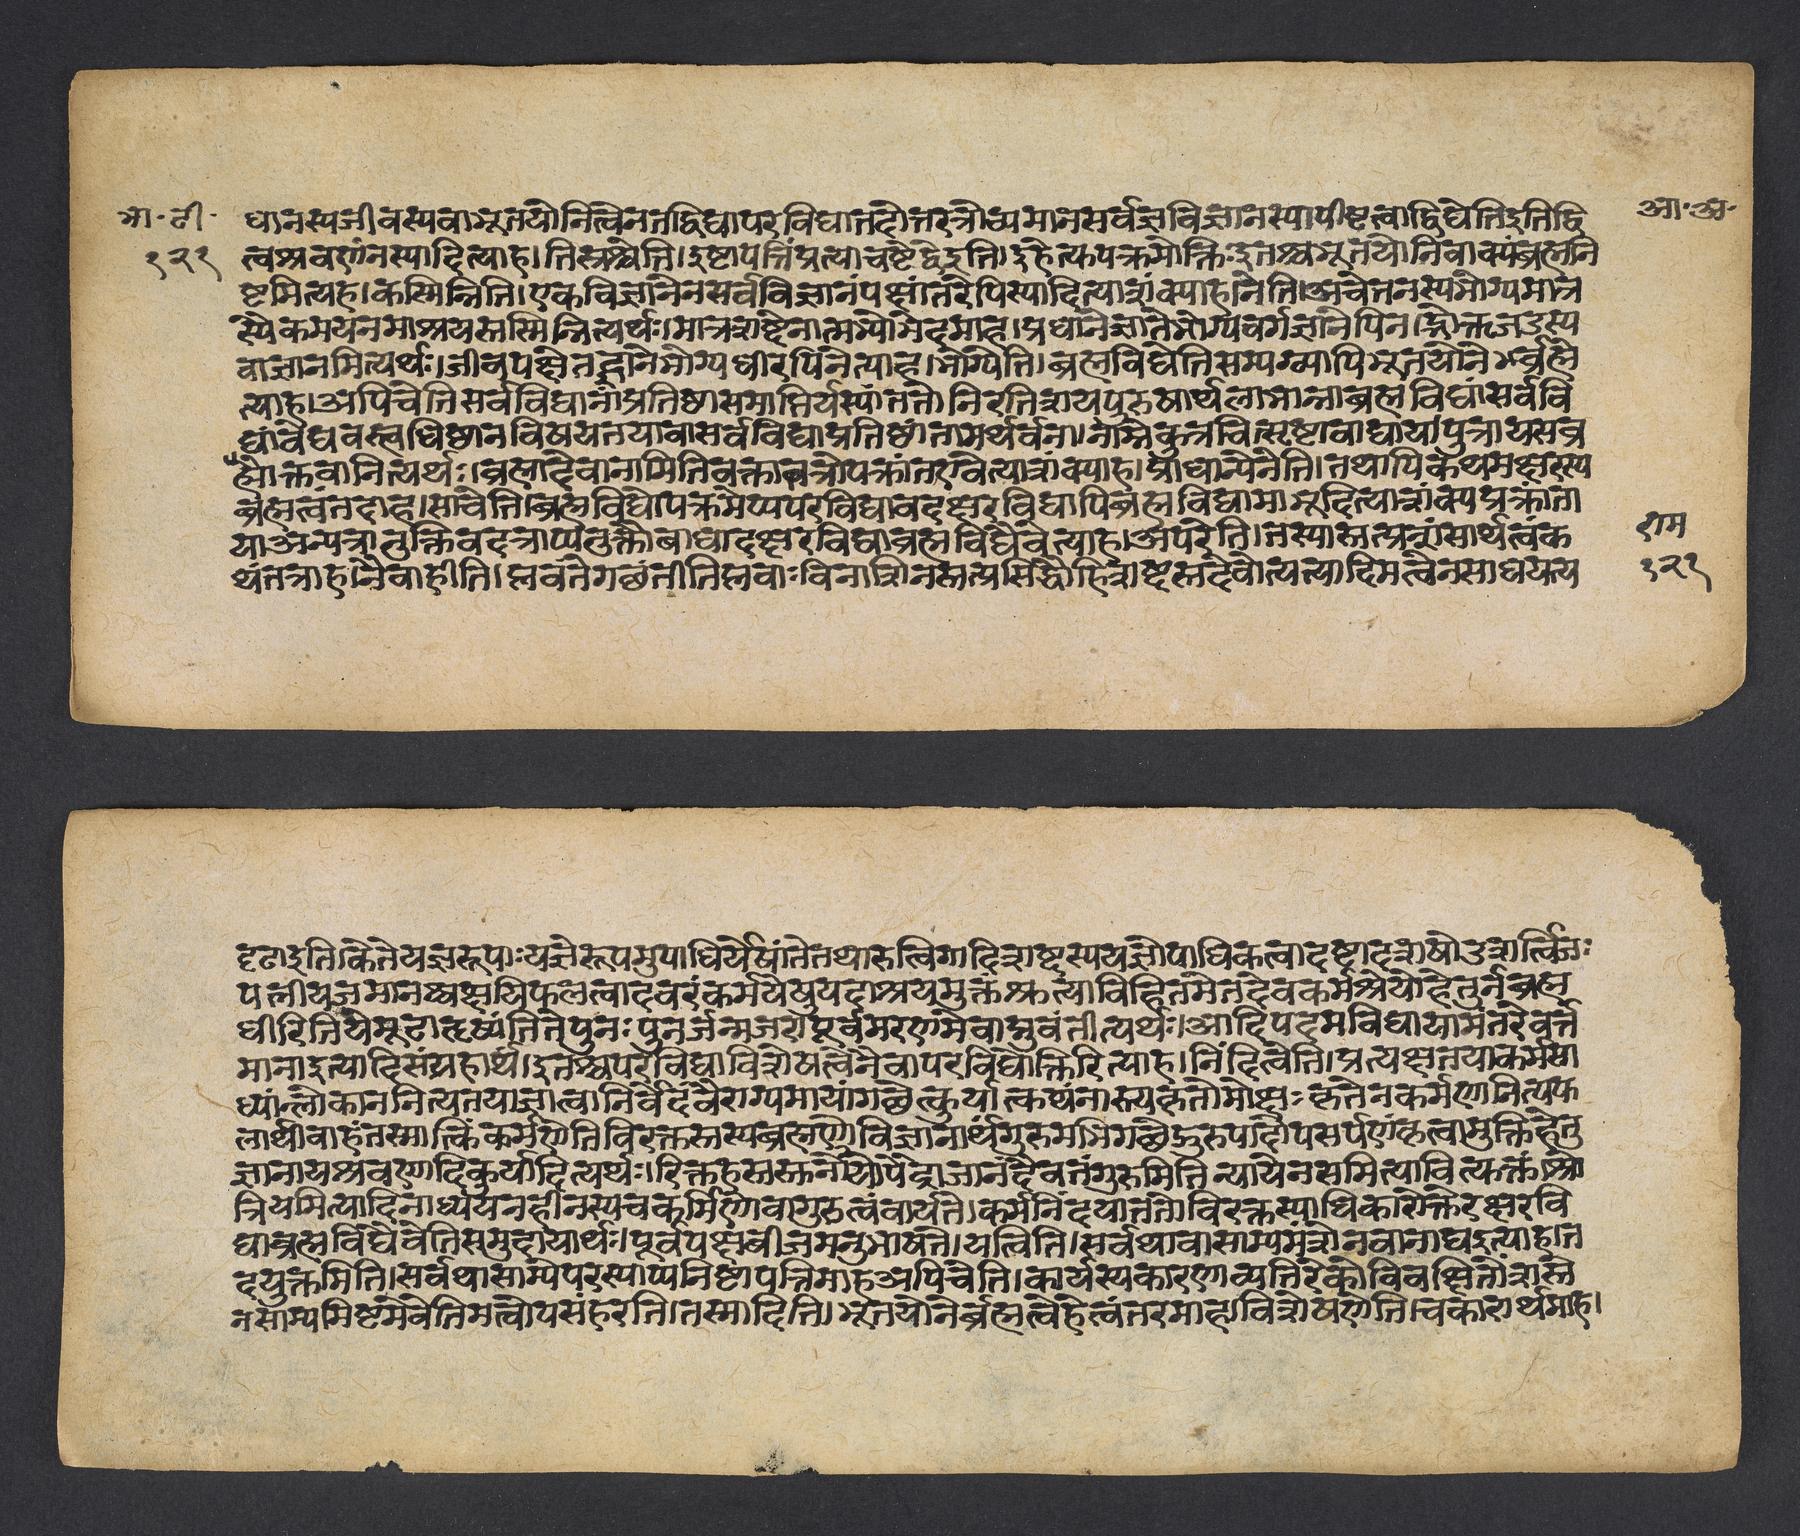 भा॰टी॰
१२१
आ॰अ॰
धानस्यजीवस्यवाभूतयोनित्वेनतद्विद्यापरविद्यातदोत्तरत्रोच्यमानसर्वज्ञविज्ञानस्यापीष्टत्वाद्विद्येतिइतिद्वि
त्वश्रवणंनस्यादित्याह।तिस्रश्चेति।इष्टापत्तिंप्रत्याचष्टेद्वेइति।इहेत्यपक्रमोक्तिःइतश्चभूतयोनिवाक्यंब्रह्मनि
ष्टमित्यह।कस्मिन्निति।एकविज्ञानेनसर्वविज्ञानंपक्षांतरेपिस्यादित्याशंक्याह।नेति।अचेतनस्यभोग्यमात्र
स्यैकमयनमाश्रयस्तस्मिन्नित्यर्थः।मात्रशब्देनात्मभ्योभेदमाह।प्रधानेज्ञातेभोग्यवर्गज्ञानेपिन।भोक्तृजडस्य
वाज्ञानमित्यर्थः।जीवपक्षेतद्ज्ञानेभोग्यधीरपिनेत्याह।भोग्येति।ब्रह्मविद्येतिसम्यग्व्यापिभूतयोनेर्भब्रह्मे
त्याह।अपिचेतिसर्वविद्यानांप्रतिष्ठासमाप्तिर्यस्यांततोनिरतिशयपुरुषार्थलाभात्ताब्रह्मविद्यांसर्ववि
द्यांवेद्यवस्त्वधिष्ठानविषयतयावासर्वविद्याप्रतिष्ठांतामथर्वना।नाम्नेकुत्रचित्सृष्टावाद्याय।पुत्रायसब्र
ह्मोक्तवानित्यर्थः।ब्रह्मादेवानामितिवक्ताचत्रोपक्रांतएवेत्याशंक्याह।प्राधान्येनेति।तथापिकथमक्षरस्य
ब्रह्मत्वंतदाह।साचेति।ब्रह्मविद्योपक्रमेप्यपरविद्यावदक्षरविद्यापिब्रह्मविद्यामाभूदित्याशंक्यप्रक्रांता
याअन्यत्रातुक्तिवदत्राप्यनुक्तौबाधादक्षरविद्याब्रह्मविद्यैवेत्याह।अपरेति।तस्यास्तत्प्रशंसार्थत्वंक
थंतत्राह।नैवाहीति।प्लवंतेगछंतीतिप्लवाःविनाशिनस्तत्प्रसिद्धौहिशब्दस्तदेवोत्पत्त्यादिमत्वेनसाधयत्य
राम
१२१
दृढाइति।केतेयज्ञरूपाःयज्ञेरूपमुपाधिर्येषांतेतथाऋत्विगादिशब्दस्ययज्ञोपाधिकत्वादष्टादशषोडशर्त्विजः
पत्नीयजमानश्चक्षयिफलत्वादवरंकर्मयेषुपदाश्रयमुक्तंश्रुत्याविहितमेतदेवकर्मश्रेयोहेतुर्नब्रह्म
धीरितियेमूढाहृष्यंतितेपुनःपुनर्जन्मजरापूर्वमरणमेवाप्नुवंतीत्यर्थः।आदिपदमविद्यायामंतरेवर्त्त
मानाइत्यादिसंग्रहार्थं।इतश्चपरविद्याविशेषत्वेनैवापरविद्योक्तिरित्याह।निंदित्वेति।प्रत्यक्षतयाकर्मसा
ध्यांल्लोकाननित्यतयाज्ञात्वानिर्वेदंवैराग्यमायांगछेत्कुर्यात्कथंनास्त्यकृतोमोक्षःकृतेनकर्मणानित्यफ
लार्थीवाहंतस्मात्किंकर्मणेतिविरक्तस्तस्यब्रह्मणोविज्ञानार्थंगुरुमभिगछेद्गुरुपादोपसर्पणंकृत्वामुक्तिहेतु
ज्ञानायश्रवणादिकुर्यादित्यर्थः।रिक्तहस्तस्तनोपेयोपेद्राजानंदैवतंगुरुमितिन्यायेनसमित्पावित्युक्तंश्रो
त्रियमित्यादिनाध्ययनहीनस्यचकर्मिणोवागुरुत्वंवार्यते।कर्मनिंदयाततोविरक्तस्याधिकारोक्तेरक्षरवि
द्याब्रह्मविद्यैवेतिसमुदायार्थः।पूर्वपक्षबीजमनुभाषते।यत्विति।सर्वथावासाम्यमंशेनवानाद्यइत्याह।त
दयुक्तमिति।सर्वथासाम्येपरस्याप्यनिष्टापत्तिमाहअपिचेति।कार्यस्यकारणाव्यतिरेकोविवक्षितोंशस्ते
नसाम्यमिष्टमेवेतिमत्वोपसंहरति।तस्मादिति।भूतयोनेर्ब्रह्मत्वेहेत्वंतरमाह।विशेषणेति।चकारार्थमाह।